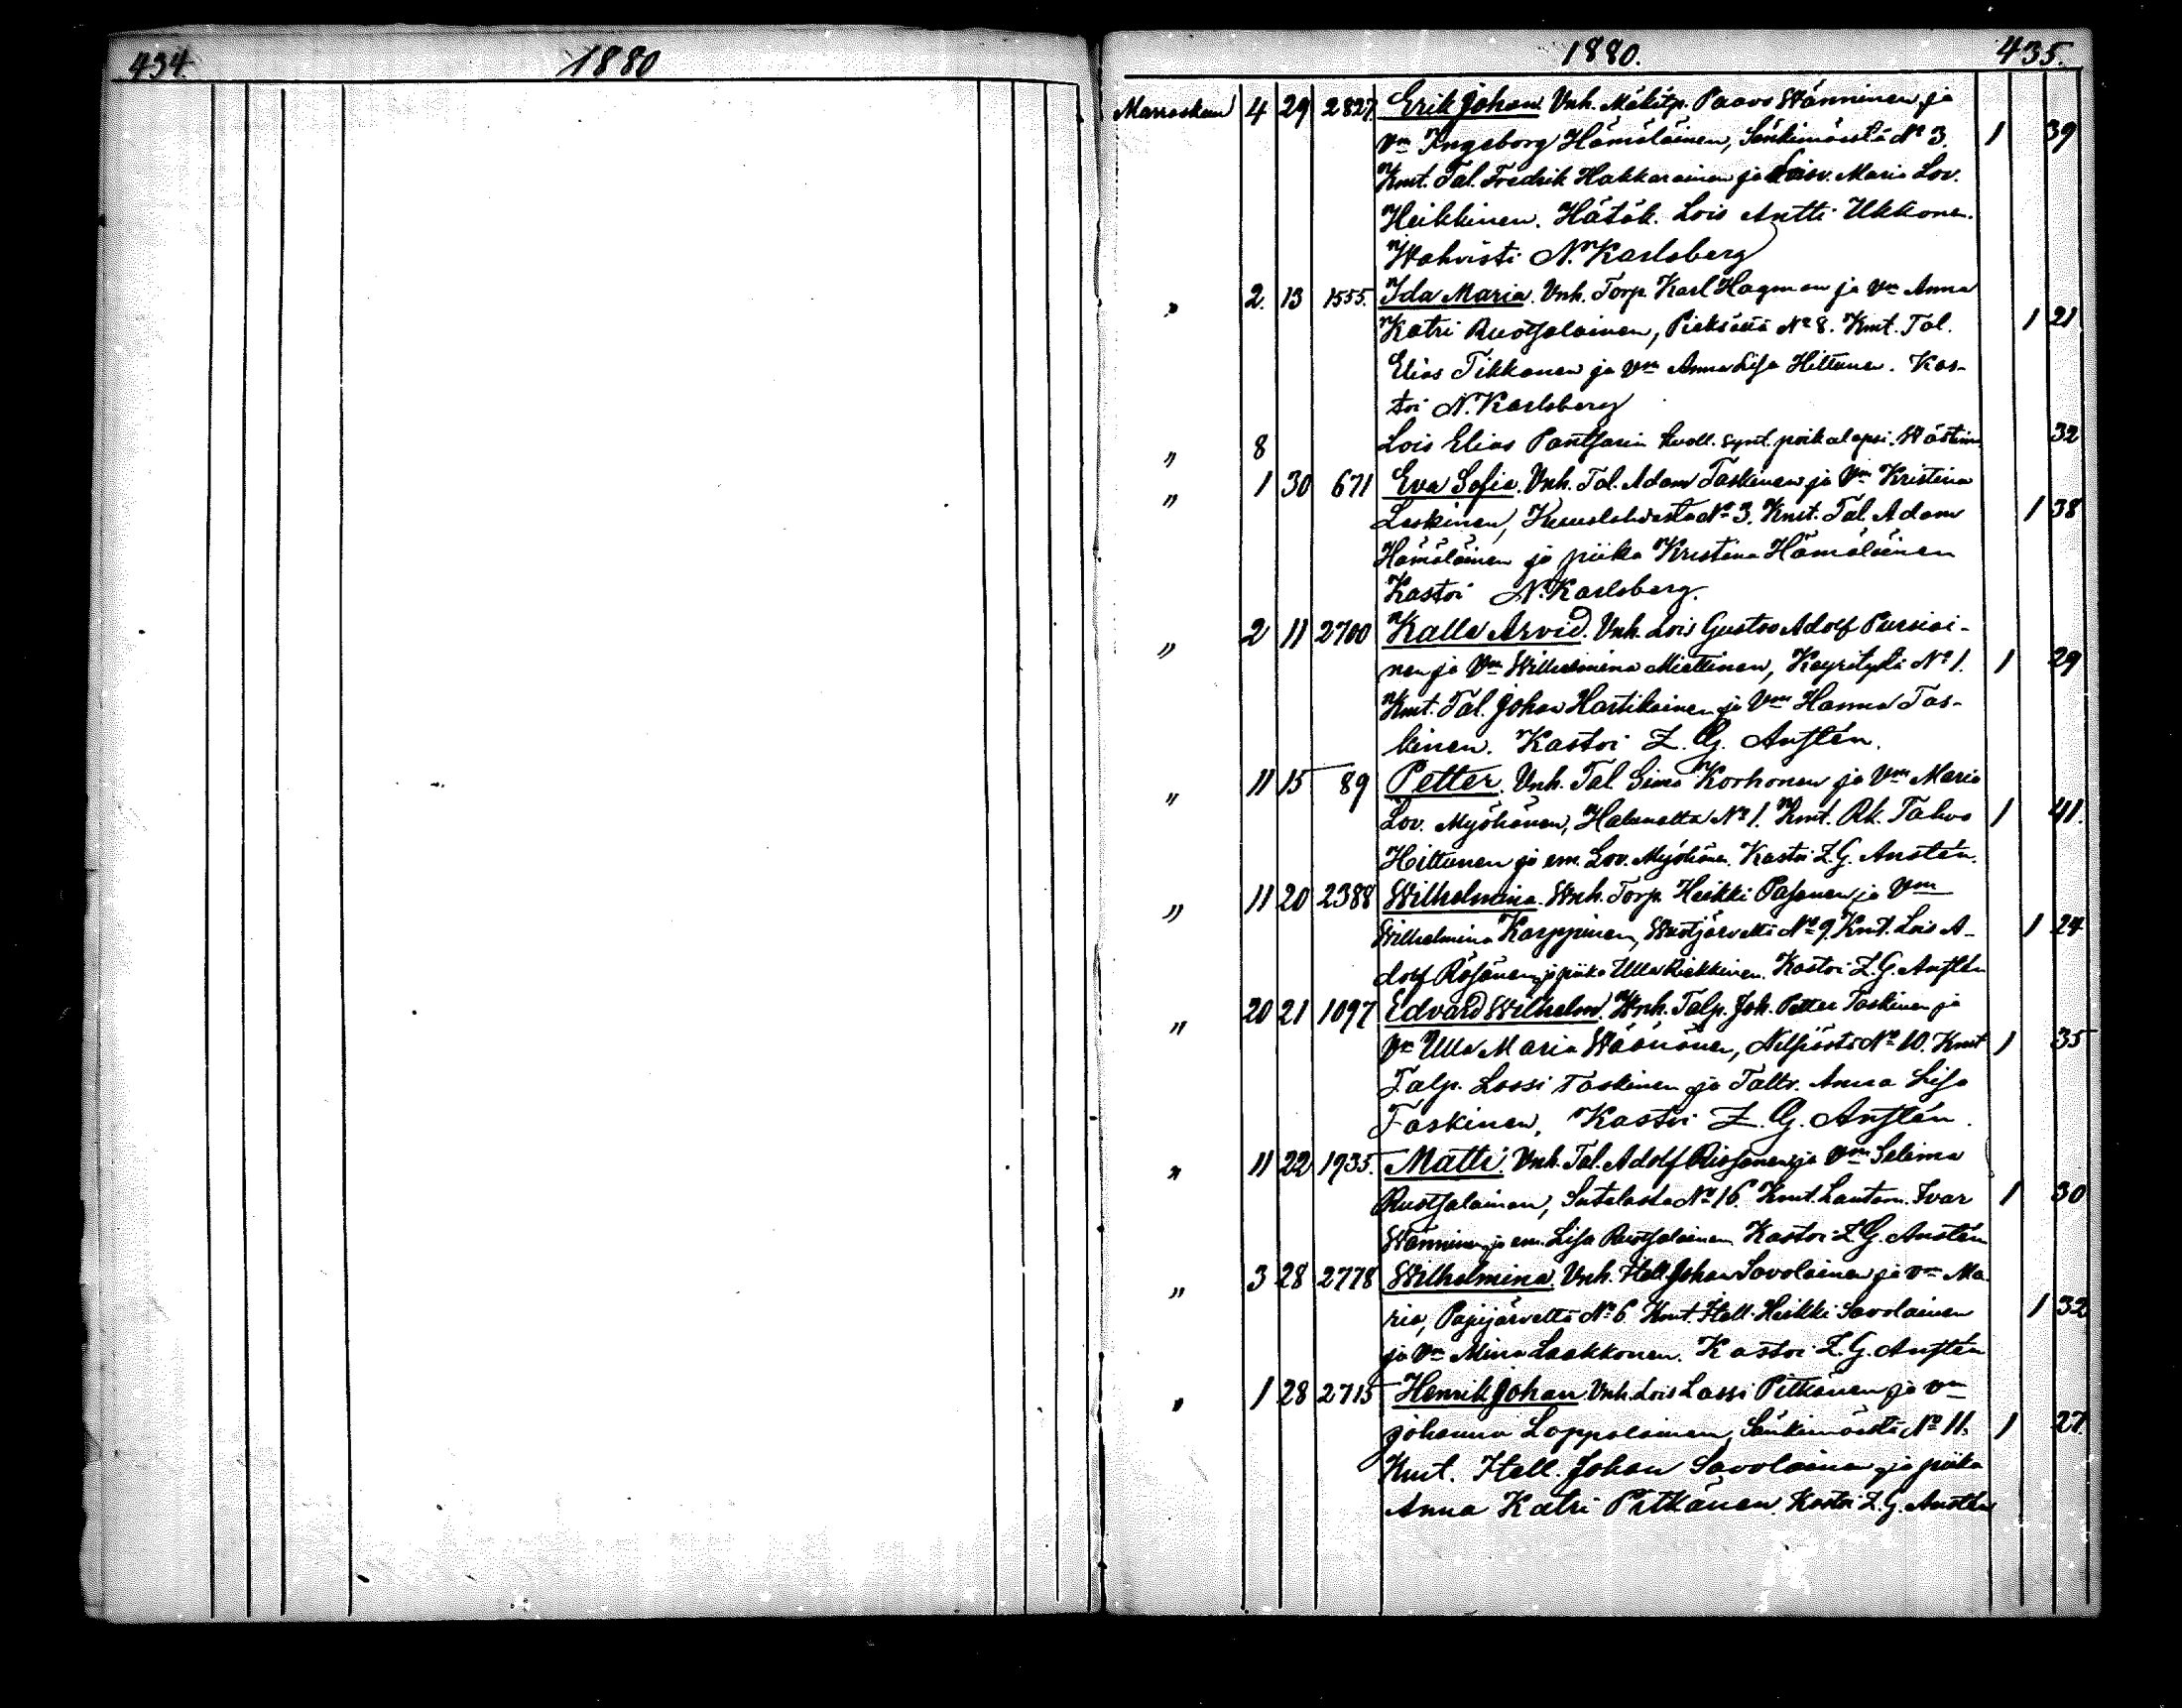 434. 1880
1880. 435.
Marraskuu 4 29 2827 Erik Johan. Vnh. Mäkitp. Paavo Wänninen ja
Vm Ingeborg Hämäläinen, Sänkimäestä No 3. 1 39
Kmt. Tal. Fredrik Hakkarainen ja Loisv. Maria Lov.
Heikkinen. Hätäk. Lois Antti Ukkonen.
Wahvisti N. Karlsberg
" 2. 13 1555. Ida Maria. Vnh. Torp. Karl Hagman ja Vm Anna
Katri Ruotsalainen, Pieksästä No 8. Kmt. Tal. 1 21
Elias Tikkanen ja Vm Anna Lisa Hiltunen. Kas-
toi N. Karlsberg
" 8 Lois Elias Pantsarin kuoll. synt. poikalapsi. 32
" 1 30 671 Eva Sofia. Vnh. Tal. Adam Taskinen ja Vm Kristina
Laskinen, No 3. Kmt. Tal. Adam 1 38
Hämäläinen ja piika Kristina Hämäläinen
Kastoi N. Karlsberg.
" 2 11 2700 Kalle Arvid. Vnh. Lois Gustav Adolf Pursiai-
nen ja Vm Wilhelmina Miettinen, Keyritystä No 1. 1 29
Kmt. Tal. Johan Hartikainen ja Vm Hanna Tas-
kinen. Kastoi Z. G. Anstén.
" 11 15 89 Petter. Vnh. Tal Simo Korhonen ja Vm Maria
Lov. Myöhänen, Halunalta No 1. Kmt. Rk. Tahvo 1 41.
Hiltunen ja em. Lov. Myöhänen. Kastoi Z. G. Anstén.
" 11 20 2388 Wilhelmina. Wnh. Torp. Heikki Pasanen ja Vm
Wilhelmina Karppinen, Wuotjärveltä No 9. Kmt. Lois A- 1 24
dolf Räsänen ja piika Ulla Riekkinen. Kastoi Z. G. Anstén
" 20 21 1097 Edvard Wilhelm. Wnh. Talp. Joh. Petter Taskinen ja
Vm Ulla Maria Wäänänen, Nilsiästä No 10. Kmt 1 35
Talp. Lassi Taskinen ja Taltr. Anna Lisa
Taskinen, Kastoi Z. G. Anstén.
" 11 22 1935. Matti. Vnh. Tal. Adolf Rissanen ja Vm Selima
Ruotsalainen, Sutelasta No 16. Kmt. Lautam. Ivar 1 30
Wänninen ja em. Lisa Ruotsalainen Kastoi Z. G. Anstén
" 3 28 2778 Wilhelmina Vnh. Itell. Johan Savolainen ja Vm Ma-
ria, Pajujärveltä No 6 Kmt. Itell. Heikki Savolainen 1 32
ja Vm Mina Laakkonen. Kastoi Z. G. Anstén
" 1 28 2715 Henrik Johan Vnh. Lois Lassi Pitkänen ja Vm
Johanna Lappalainen, Sänkimäestä No 11. 1 27.
Kmt. Itell. Johan Savolainen ja piika
Anna Katri Pitkänen. Kastoi Z. G. Anstén